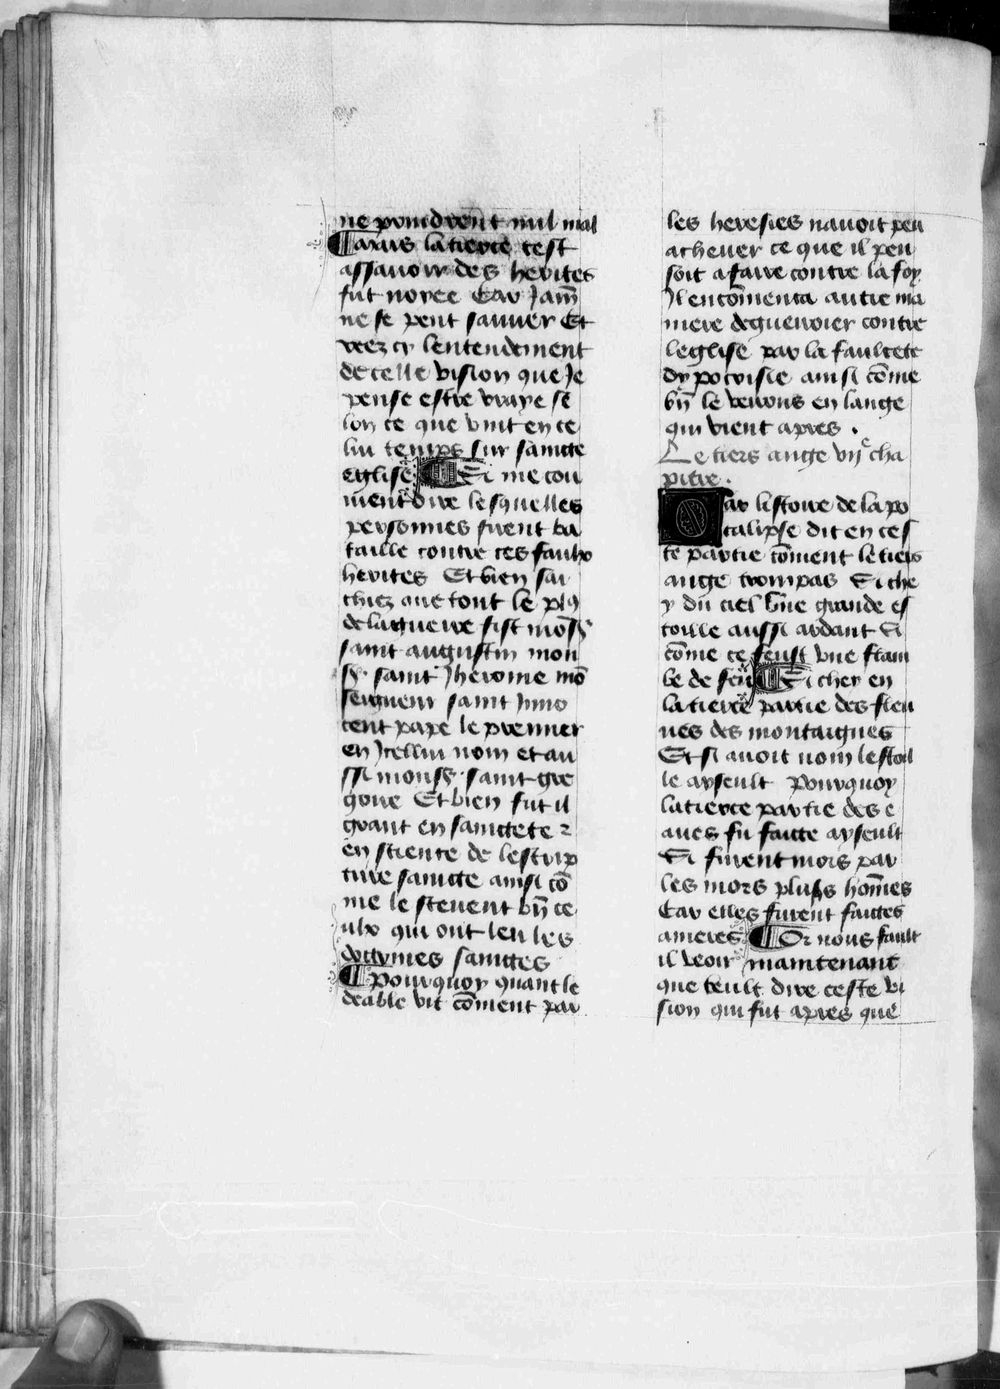 ne poindrent nul mal
¶ Mais la tierce cest
assavoir des herites
fut noyee Car Jam̄
ne se peut sauver Et
veez cy lentendement
de celle vision que Je
pense estre vraye se
lon ce que vint en ce
lui temps sur saincte
eglise ¶ Si me cou
vient dire lesquelles
personnes firent ba
taille contre ces faulx
herites Et bien sai
chiez que tout le plꝯ
de la guerre fist mos̄ʳ
saint augustin mon
sʳ saint Jherome mō
seigneur saint Inno
cent pape le premier
en Jcellui nom et au
ssi monsʳ saint gre
goire Et bien fut il
grant en sainctete ⁊
en science de lescrip
ture saincte ainsi cō
me le scevent bn̄ ce
ulx qui ont leu les
doctrines sainctes
¶ Pourquoy quant le
deable vit cōment par
les heresies navoit peu
achever ce que il pen
soit a faire contre la foy
Jl encōmenca autre ma
niere de guerroier contre
leglise par la faulcete
dypocrisie ainsi cōme
bn̄ le verrons en lange
qui vient apres .
Le tiers ange viiᵉ cha
pitre .
Par listoire de lapo
calipse dit en ces
te partie cōment le tiers
ange trompas Si che
y du ciel vne grande es
toille aussi ardant Si
cōme ce feust vne flam
be de feu ¶ Si chey en
la tierce partie des fleu
ves des montaignes
Et si avoit nom lestoil
le ayseult Pourquoy
la tierce partie des e
aues fu faicte ayseult
Si furent mors par
les mors pluss hōmes
Car elles furent faictes
ameres ¶ Or nous fault
il veoir maintenant
que veult dire ceste vi
sion qui fut apres que